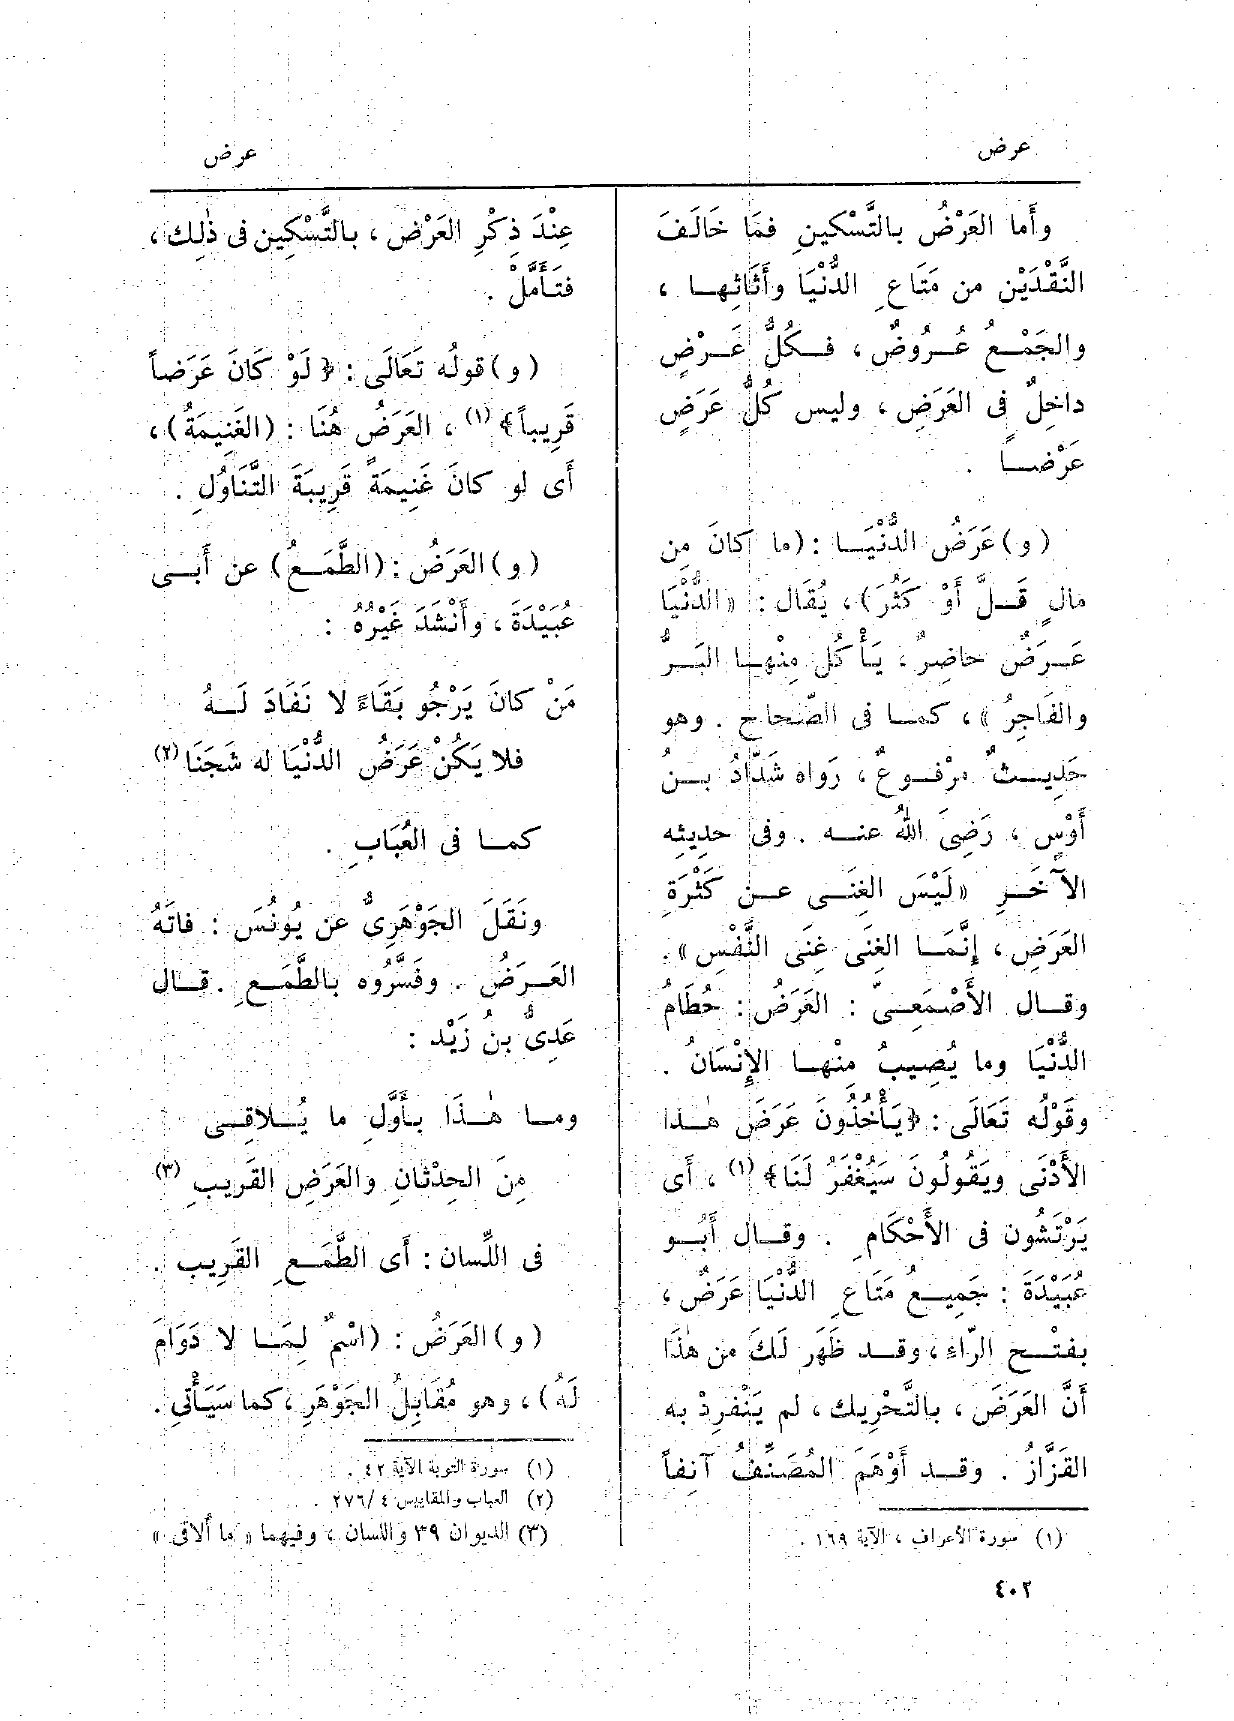 عرض
عرض
وأَما العَرْضُ بالتَّسْكينِ فمَا خَالَفَ
النَّقْدَيْن من مَتَاعِ الدُّنْيَا وأَثَاثِها ،
والجَمْعُ عُرُوضٌ ، فكُلُّ عَرْضٍ
داخِلٌ فى العَرَضِ ، وليس كُلُّ عَرَضٍ
عَرْضاً .
(و) عَرَضُ الدُّنْيَا : (ما كانَ مِن
مالٍ قَلَّ أَوْ كَثُرَ) ، يُقَال : «الدُّنْيَا
عَرَضٌ حاضِرٌ ، يَأْكُل مِنْها البَرُّ
والفَاجِرُ » ، كما فى الصّحاح . وهو
حَدِيثٌ مرْفوعٌ ، رَواه شَدّادُ بن
أَوْسٍ ، رَضِىَ اللهُ عنه . وفى حدِيثِه
الآخَرِ «لَيْسَ الغِنَى عن كَثْرَةِ
العَرَضِ ، إِنَّمَا الغِنَى غِنَى النَّفْسِ» .
وقال الأَصْمَعِىّ : العَرَضُ : حُطَامُ
الدُّنْيَا وما يُصِيبُ مِنْها الإِنْسَانُ .
وقَوْلُه تَعَالَى : ﴿يَأْخُذُونَ عَرَضَ هٰذا
الأَدْنَى ويَقُولُونَ سَيُغْفَرُ لَنَا﴾ (١) ، أَى
يَرْتَشُون فى الأَحْكَامِ . وقال أَبُو
عُبَيْدَةَ : جَمِيعُ مَتَاعِ الدُّنْيَا عَرَضٌ ،
بفتْحِ الرّاءِ ، وقد ظَهَر لَكَ من هٰذَا
أَنَّ العَرَضَ ، بالتَّحْرِيك ، لم يَنْفرِدْ به
القَزّازُ . وقد أَوْهَمَ المُصَنِّفُ آنِفاً
(١) سورة الأعراف ، الآية ١٦٩ .
عِنْدَ ذِكْرِ العَرْض ، بالتَّسْكِين فى ذٰلِك ،
فتَأَمَّلْ .
(و) قولُه تَعَالَى : ﴿ لَوْ كَانَ عَرَضاً
قَرِيباً﴾ (١) ، العَرَضُ هُنَا : (الغَنِيمَةُ) ،
أَى لو كانَ غَنِيمَةً قَرِيبَةَ التَّنَاوُلِ .
(و) العَرَضُ : (الطَّمَعُ) عن أَبى
عُبَيْدَةَ ، وأَنْشَدَ غَيْرُهُ :
مَنْ كانَ يَرْجُو بَقَاءً لا نَفَادَ لَهُ
فلا يَكُنْ عَرَضُ الدُّنْيَا له شَجَنَا (٢)
كما فى العُبَابِ .
ونَقَلَ الجَوْهَرِىُّ عن يُونُسَ : فاتَهُ
العَرَضُ . وفَسَّرُوه بالطَّمَعِ . قال
عَدِىُّ بنُ زَيْد :
وما هٰذَا بأَوَّلِ ما يُلاقِى
مِنَ الحِدْثانِ والعَرَضِ القَرِيبِ (٣)
فى اللِّسان : أَى الطَّمَعِ القَرِيب .
(و) العَرَضُ : (اسْمٌ لِمَا لا دَوَامَ
لَهُ) ، وهو مُقَابِلُ الجَوْهَرِ ، كما سَيَأْتِى .
(١) سورة التوبة الآية ٤٢ .
(٢) العباب والمقاييس ٤/ ٢٧٦ .
(٣) الديوان ٣٩ واللسان ، وفيهما « ما أُلاقى »
٤٠٢